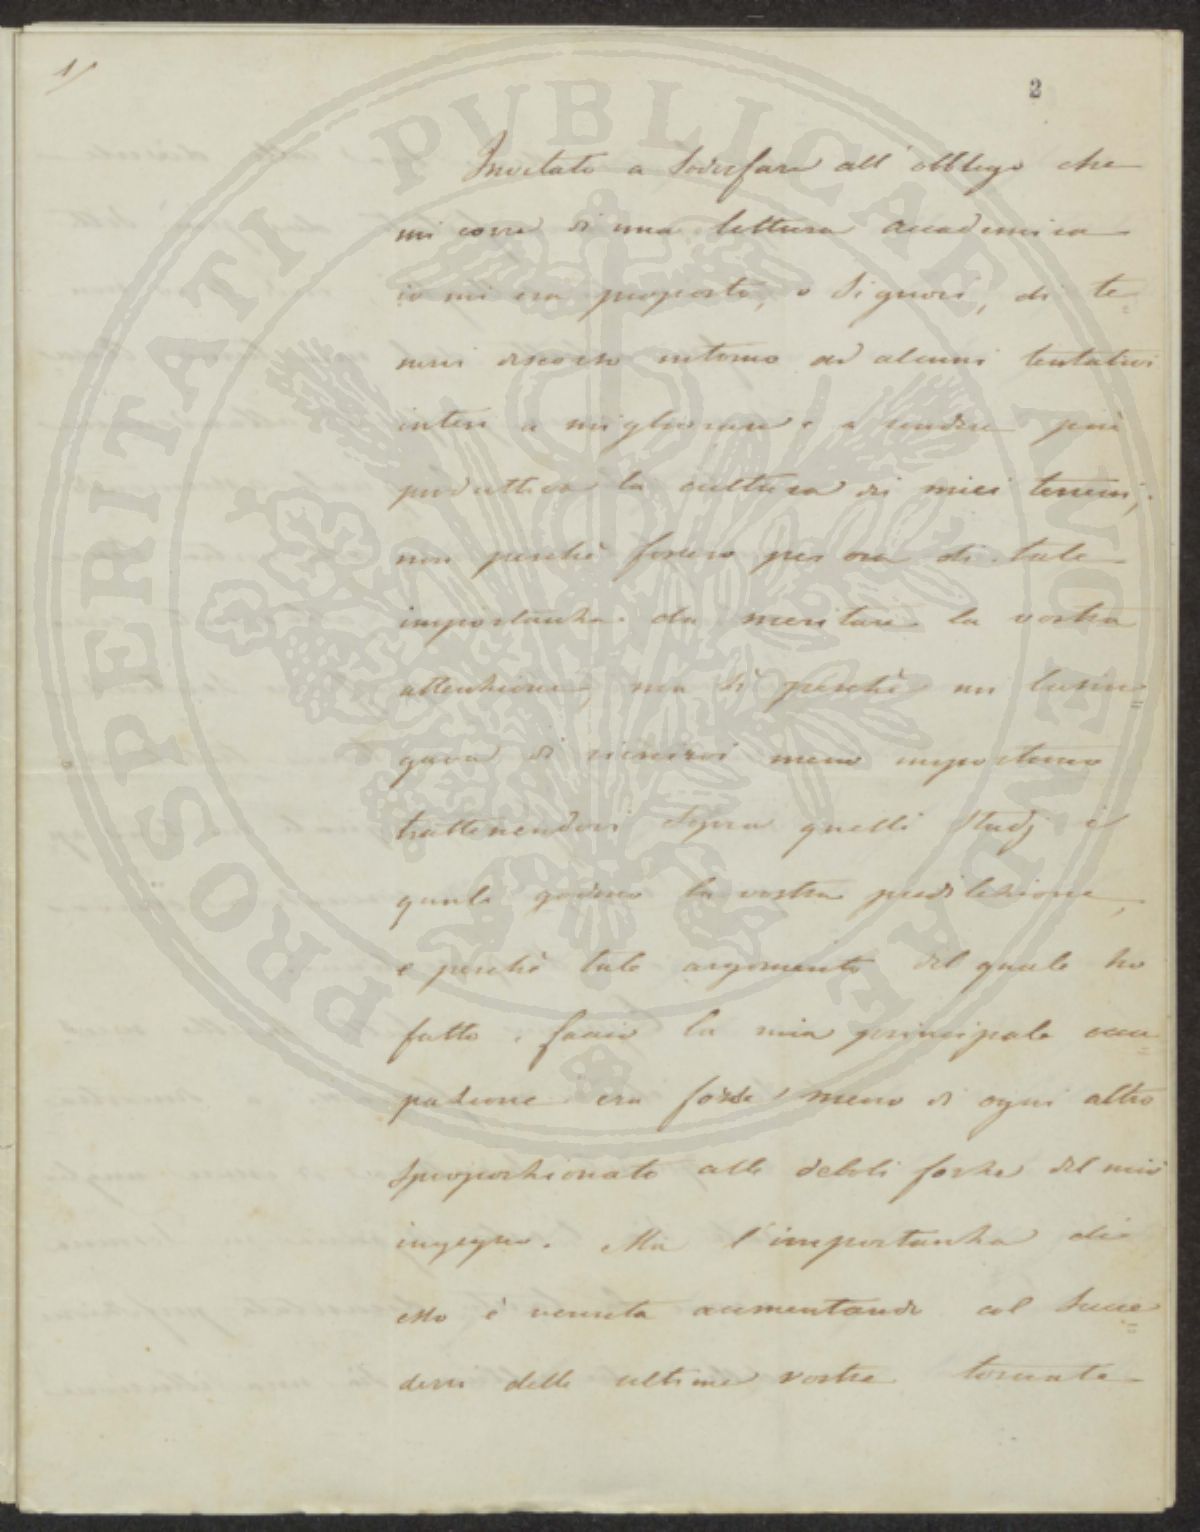 1/
2
Invitato a sodisfare all'obbligo che
mi corre di una lettura accademica
io mi era proposto, o Signori, di te=
nervi discorso intorno ad alcuni tentativi
intesi a migliorare e a rendere più
produttiva la cultura di miei terreni;
non perchè fossero per ora di tale
importanza da meritare la vostra
attenzione, ma sì perchè mi lusin=
gava di riescirvi meno importuno
trattenendovi sopra quelli studj i
quali godono la vostra predilezione,
e perchè tale argomento del quale ho
fatto e faccio la mia principale occu=
pazione era forse meno di ogni altro
sproporzionato alle deboli forze del mio
ingegno. Ma l'importanza di
esso è venuta aumentando col succe=
dersi delle ultime vostre tornate
PROSPERITATI PUBLICAE AUGENDAE